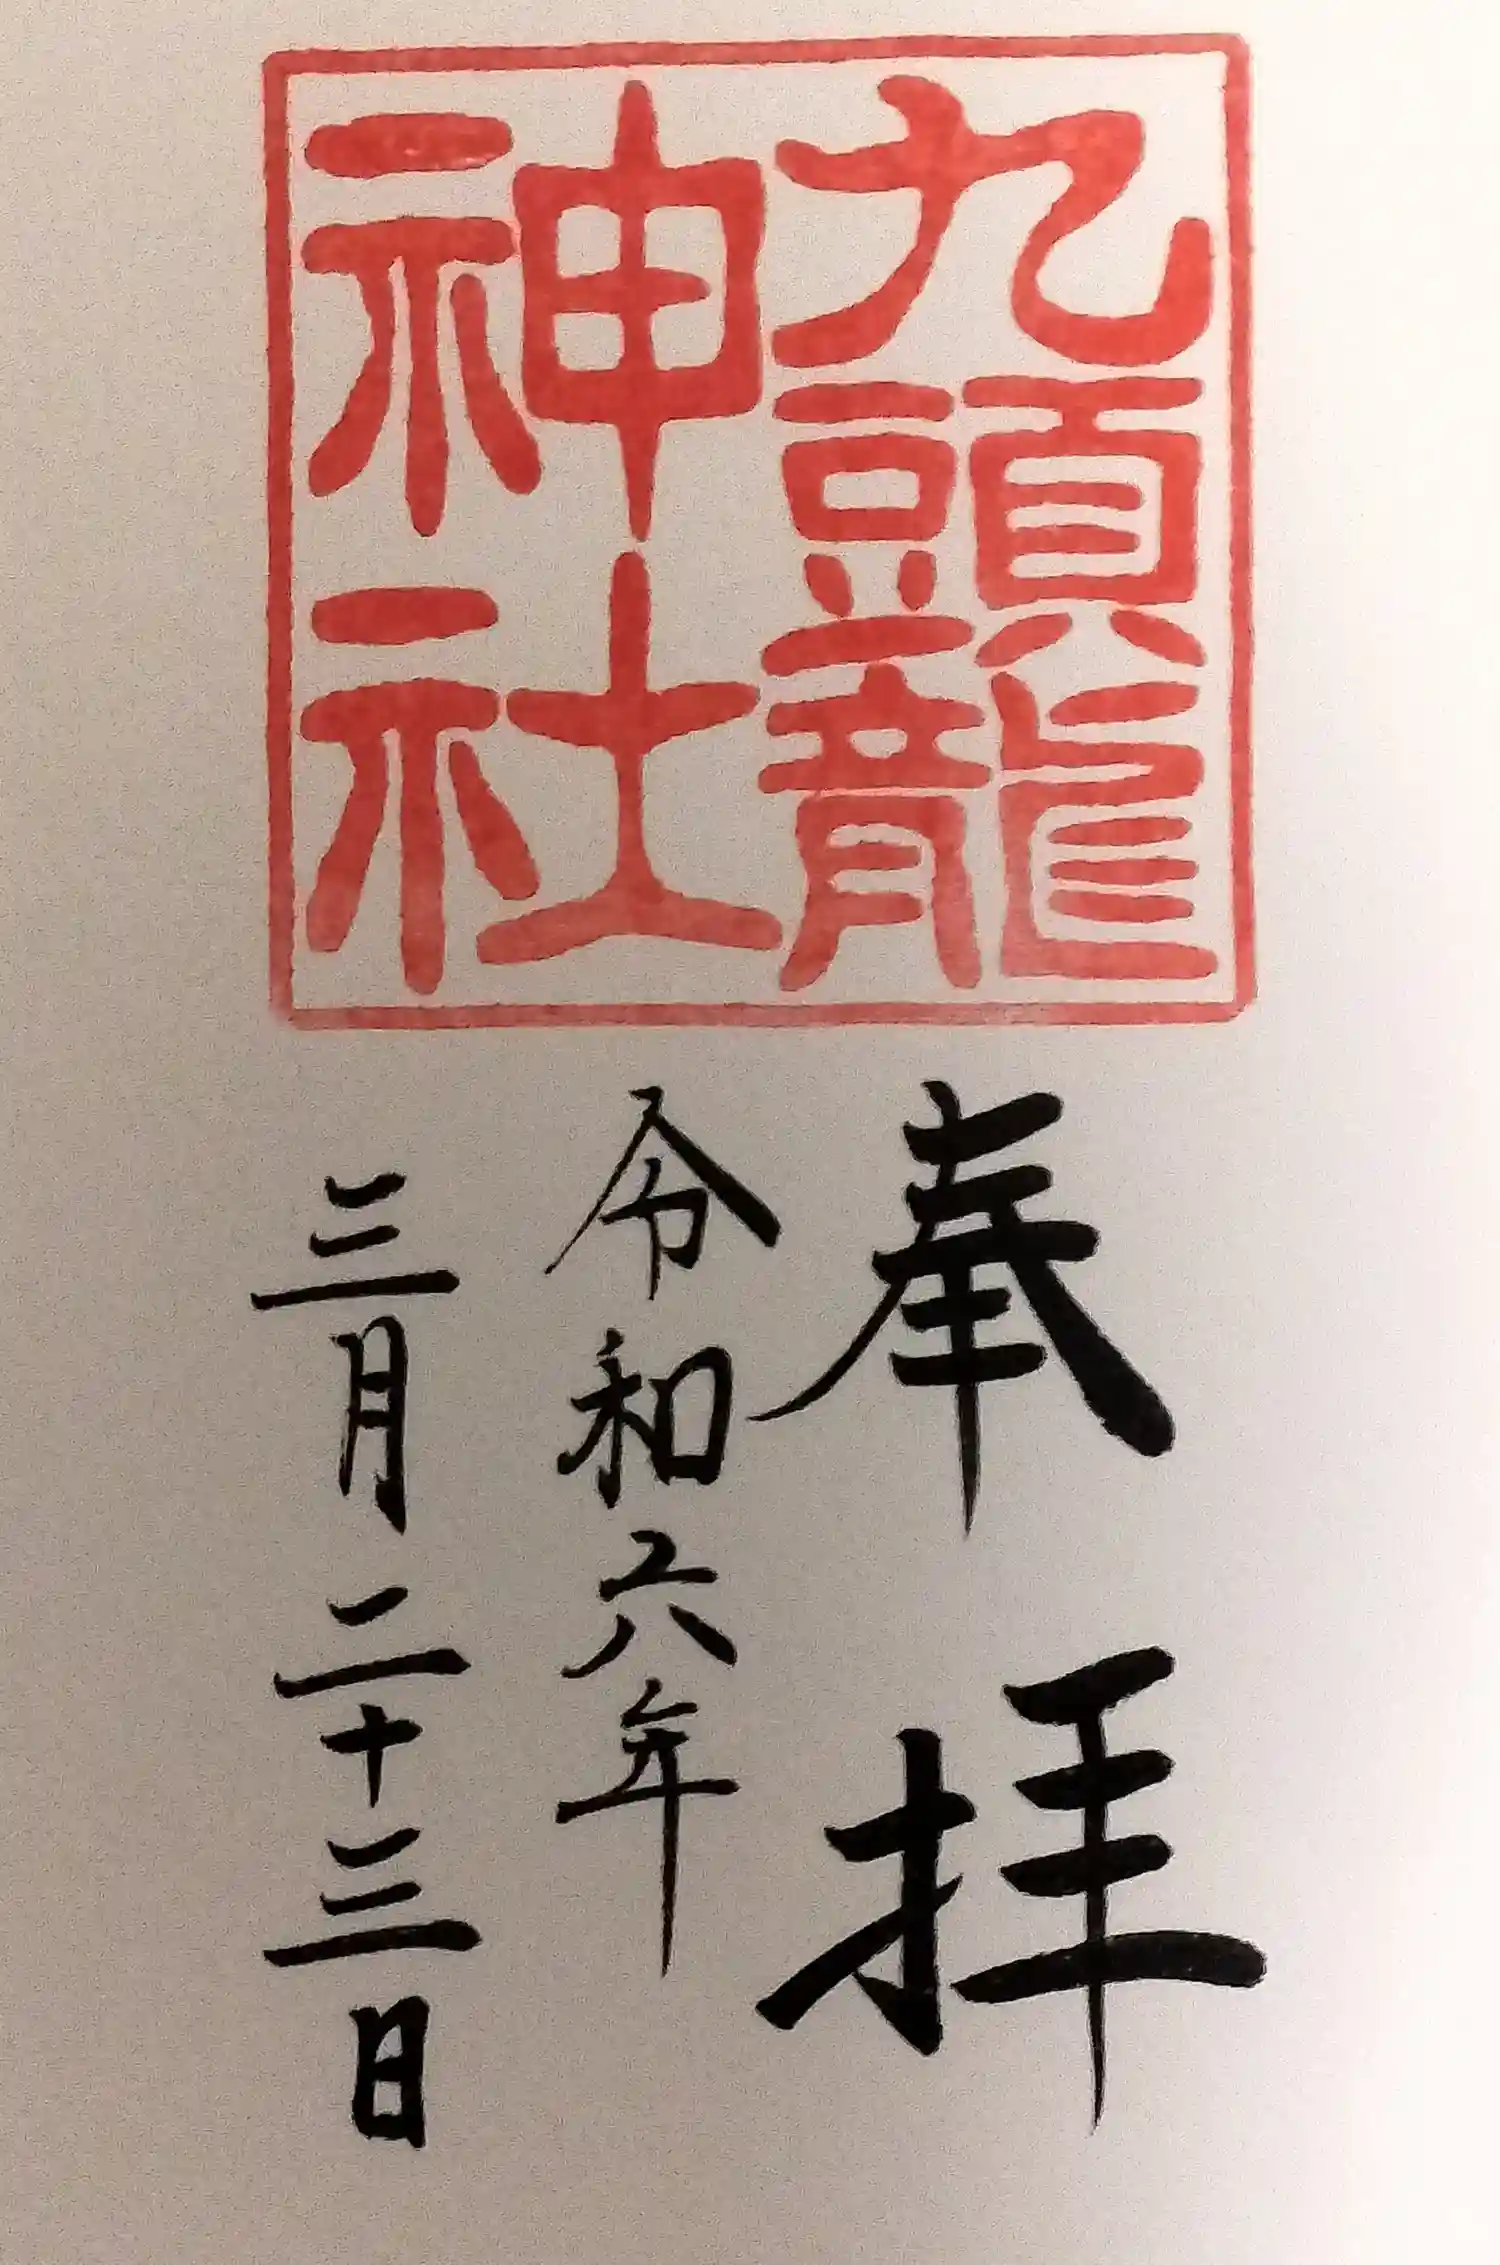 九頭龍
神社
奉拝
令和六年
三月二十三日